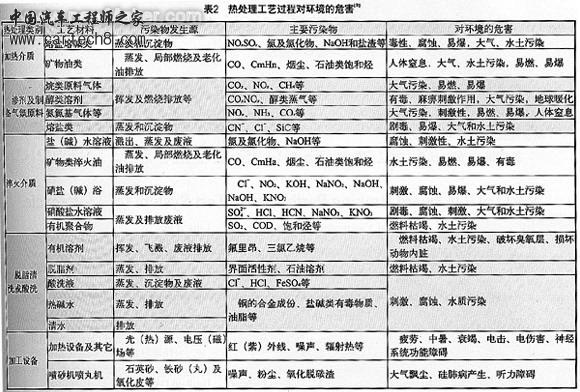 表2 热处理工艺过程对环境的危害
中国汽车工程师之家
www.cartech8.com
热处理类别 工艺材料 污染物发生源 主要污染物 对环境的危害
加热介质
蒸发和沉淀物 氟及氯化物、NaOH和盐渣等 毒性、腐蚀、易爆，大气、水土污染
矿物油类 蒸发、局部燃烧及老化油排放 CO、CmHn、烟尘、石油类饱和烃 人体窒息、大气、水土污染，易燃、易爆
烷类原料气体 挥发及燃烧排放等 CO₂、NOₓ、CH₄等 大气污染、易燃、易爆
醇类溶剂 醇类蒸气等 有毒、麻痹刺激作用，大气污染，地球暖化
氨氮基气体等 NOₓ、NH₃、CO₂等 大气污染，刺激性，易燃、易爆，人化窒息
熔盐类 蒸发和沉淀物 CN⁻、Cl⁻、SiC等 剧毒、易爆、大气和水土污染
淬火介质
盐（碱）水溶液 溅出、蒸发及废液 氯及氯化物、NaOH等 腐蚀、刺激性、水土污染
矿物类淬火油 蒸发、局部燃烧及老化油排放 CO、CmHn、烟尘、石油类饱和烃 水土污染、易燃、易爆、有毒
硝盐（碱）浴 蒸发和沉淀物 Cl⁻、NO₂、KOH、NaNO₃、NaOH、NaOH、KNO₂ 刺激、腐蚀、易爆，大气和水土污染
硝酸盐水溶液 蒸发及排放废液 HCl、HCN、NaNO₃、KNO₃ 剧毒、腐蚀、刺激、大气和水土污染
有机聚合物 SO₂、COD、饱和烃等 燃料枯竭、水土污染
脱脂清洗或酸洗
有机溶剂 挥发、飞溅、废液排放 氟里昂、三氯乙烷等 燃料枯竭、水土污染、破坏臭氧层、损坏动物内脏
脱脂剂 蒸发、排放 界面活性剂、石油溶剂 燃料枯竭、水土污染
酸洗液 蒸发、沉淀物及废液 Cl⁻、HCl、FeSO₄等 刺激、腐蚀、水质污染
热碱水 蒸发、排放 钢的合金成份、盐碱类有毒物质、油脂等
清水 排放
加工设备
加热设备及其它 光（热）源、电压（磁）场等 红（紫）外线、噪声、辐射热等 疲劳、中暑、衰竭、电击、电伤害、神经系统功能障碍
喷砂机喷丸机 石英砂、铁砂（丸）及氧化皮等 噪声、粉尘、氧化脱碳渣 大气飘尘、硅肺病产生、听力障碍